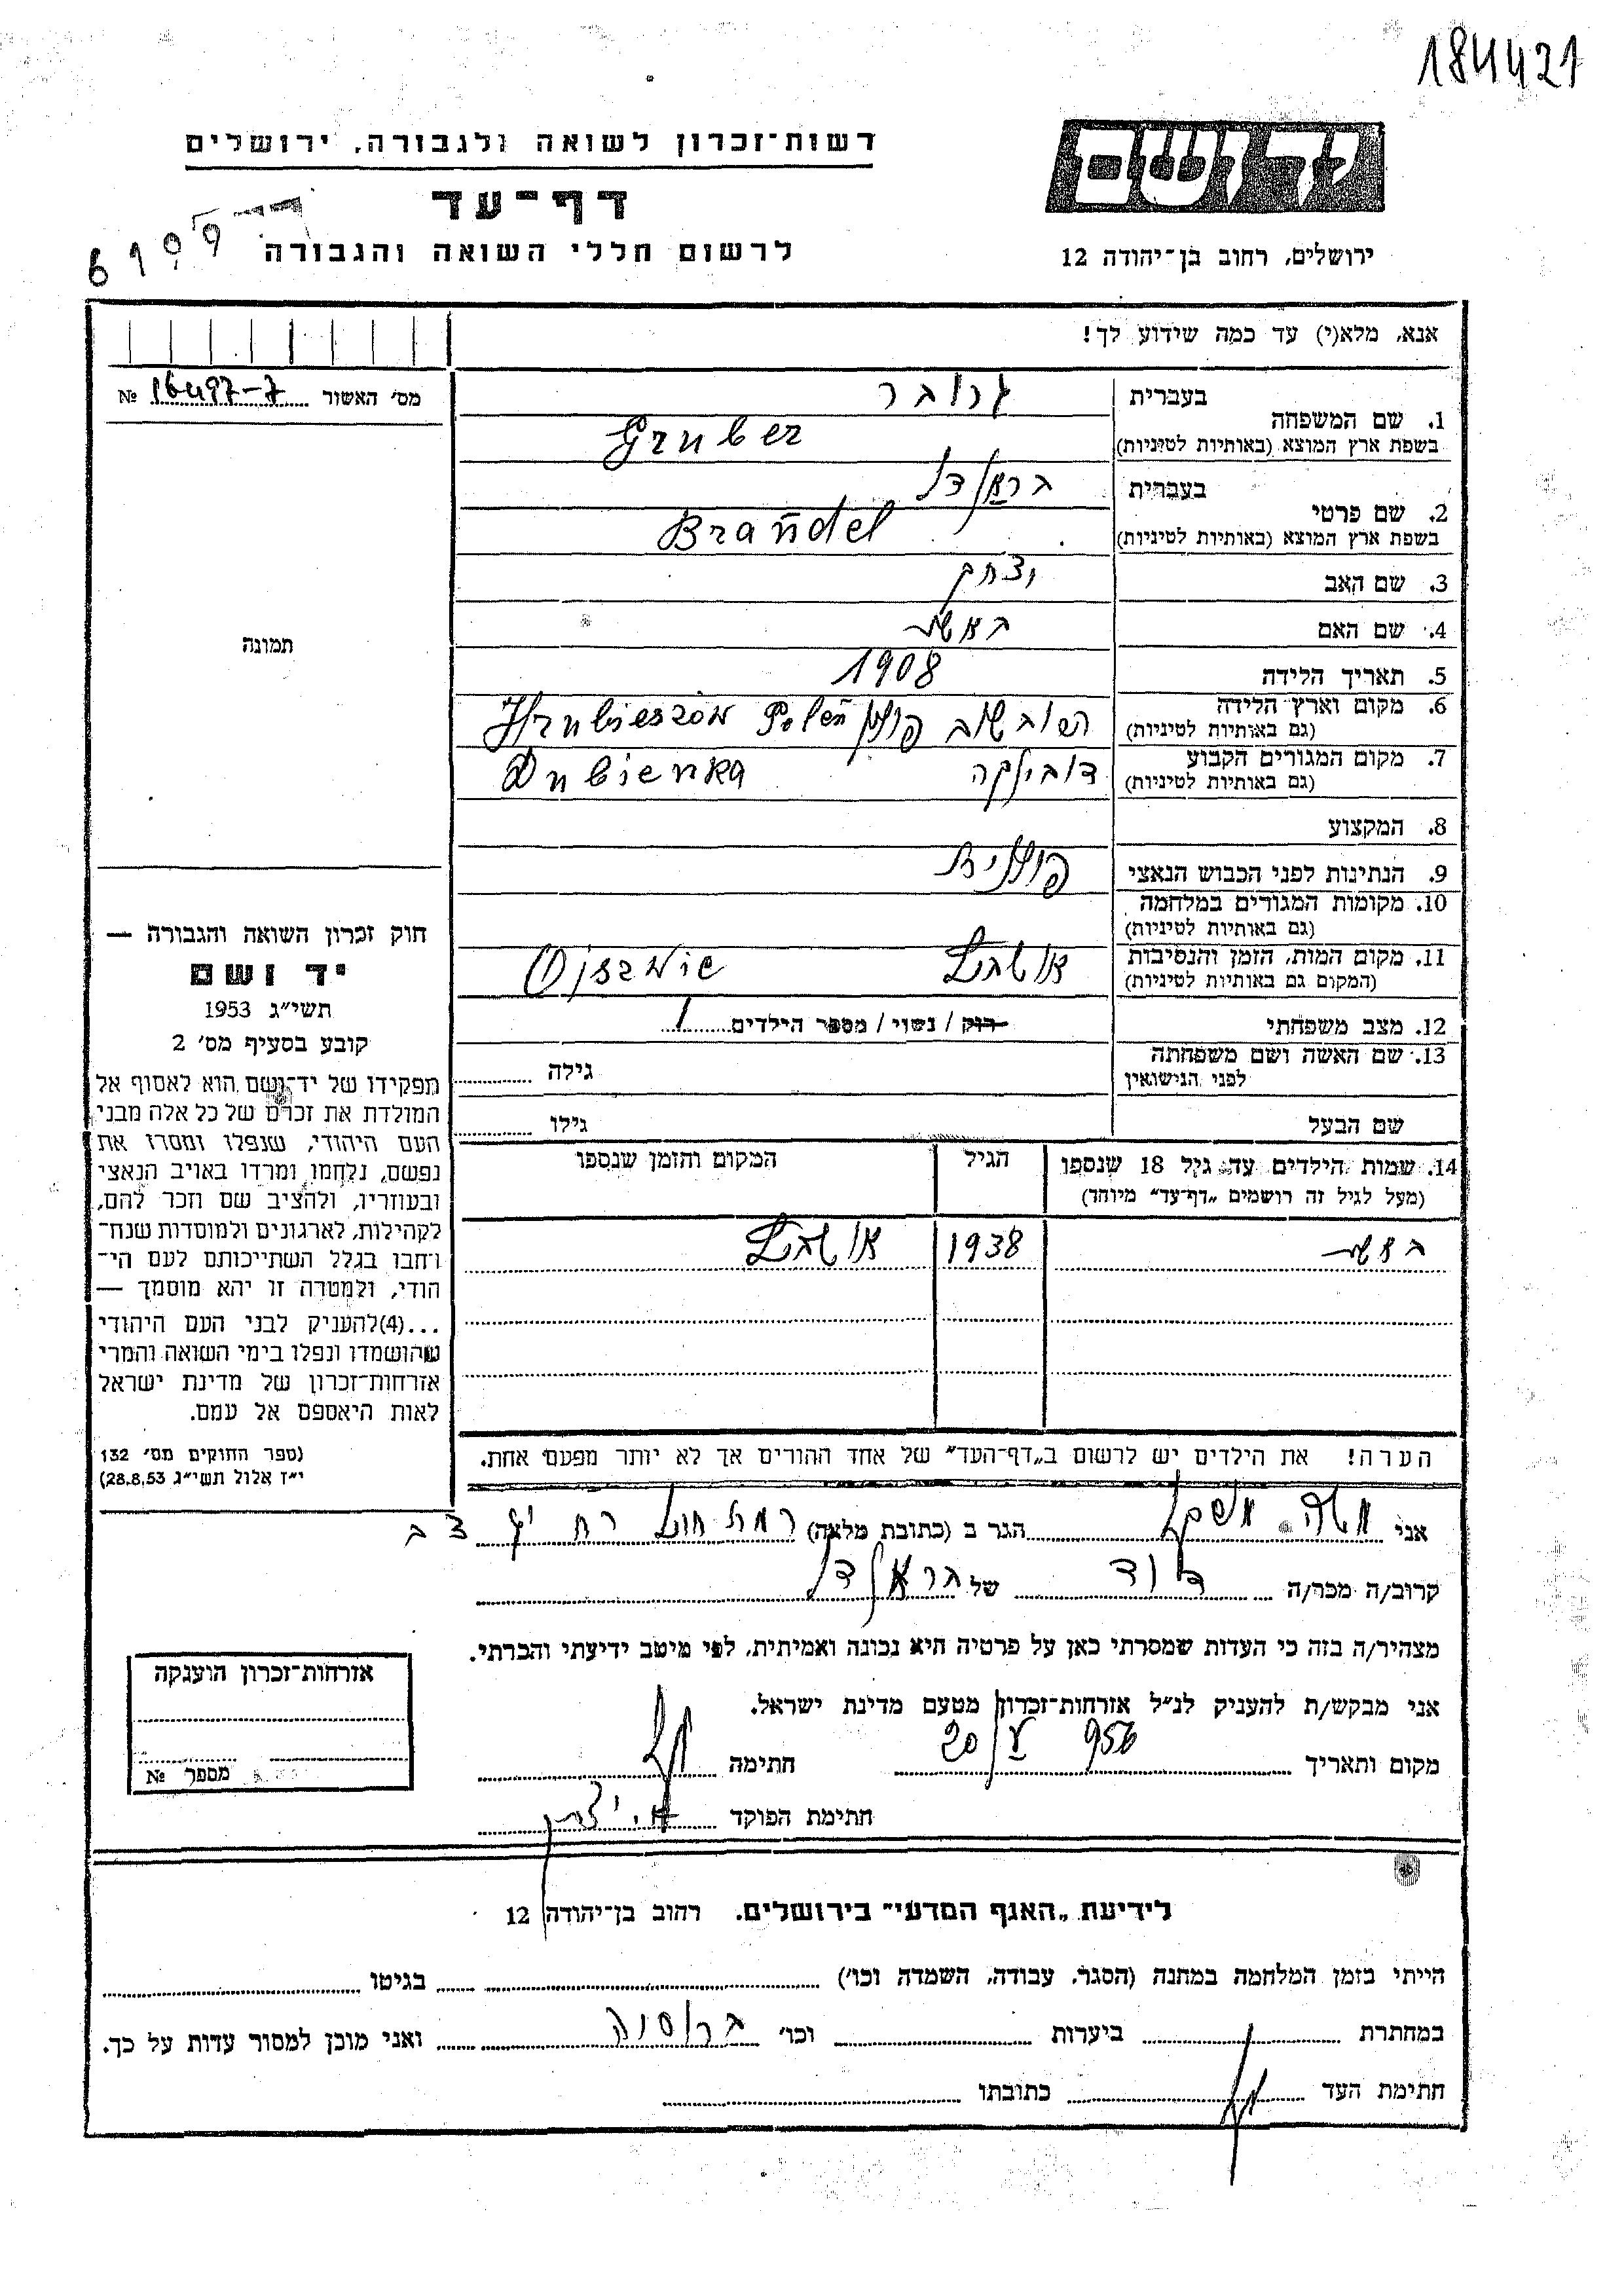 184421
יד ושם
רשות־זכרון לשואה ולגבורה, ירושלים
דף־עד
לרשום חללי השואה והגבורה
ירושלים, רחוב בן־יהודה 12
אנא, מלא(י) עד כמה שידוע לך!
מס׳ האשור 16497-7 №
תמונה
חוק זכרון השואה והגבורה —
יד ושם
תשי״ג 1953
קובע בסעיף מס׳ 2
תפקידו של יד־ושם הוא לאסוף אל
המולדת את זכרם של כל אלה מבני
העם היהודי, שנפלו ומסרו את
נפשם, נלחמו ומרדו באויב הנאצי
ובעוזריו, ולהציב שם וזכר להם,
לקהילות, לארגונים ולמוסדות שנח־
רבו בגלל השתייכותם לעם הי־
הודי, ולמטרה זו יהא מוסמך —
...(4)להעניק לבני העם היהודי
שהושמדו ונפלו בימי השואה והמרי
אזרחות־זכרון של מדינת ישראל
לאות היאספם אל עמם.
(ספר החוקים מס׳ 132
י״ז אלול תשי״ג 28.8.53)
1. שם המשפחה בעברית גרובר
בשפת ארץ המוצא (באותיות לטיניות) Gruber
2. שם פרטי בעברית בראנדל
בשפת ארץ המוצא (באותיות לטיניות) Brandel
3. שם האב יצחק
4. שם האם באשה
5. תאריך הלידה 1908
6. מקום וארץ הלידה
(גם באותיות לטיניות) פולין Hrubieszow Polen
7. מקום המגורים הקבוע
(גם באותיות לטיניות) דובינקה Dubienka
8. המקצוע
9. הנתינות לפני הכבוש הנאצי פולנית
10. מקומות המגורים במלחמה
(גם באותיות לטיניות)
11. מקום המות, הזמן והנסיבות
(המקום גם באותיות לטיניות)
12. מצב משפחתי רוק / נשוי / מספר הילדים 1
13. שם האשה ושם משפחתה
לפני הנישואין גילה
שם הבעל גילו
14. שמות הילדים עד גיל 18 שנספו הגיל המקום והזמן שנספו
(מעל לגיל זה רושמים „דף־עד״ מיוחד)
באשה 1938
הערה! את הילדים יש לרשום ב„דף־העד״ של אחד ההורים אך לא יותר מפעם אחת.
אני משה הגר ב (כתובת מלאה) רמת
קרוב/ה מכר/ה דוד של בראנדל
מצהיר/ה בזה כי העדות שמסרתי כאן על פרטיה היא נכונה ואמיתית, לפי מיטב ידיעתי והכרתי.
אני מבקש/ת להעניק לנ״ל אזרחות־זכרון מטעם מדינת ישראל.
מקום ותאריך 20/V 956 חתימה
חתימת הפוקד
אזרחות־זכרון הוענקה
מספר №
לידיעת „האגף המדעי״ בירושלים. רחוב בן־יהודה 12
הייתי בזמן המלחמה במחנה (הסגר, עבודה, השמדה וכו׳) בגיטו
במחתרת ביערות וכו׳ ברוסיה ואני מוכן למסור עדות על כך.
חתימת העד כתובתו